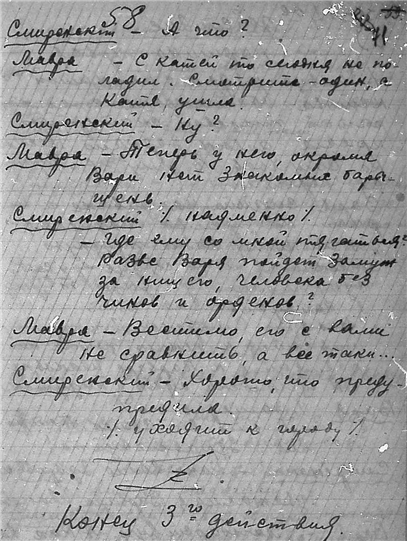 58
11
Смиренский – А что?
Мавра – С катей то сегодня не по-
ладил. Смотрите – один, а
Катя, ушла.
Смиренский – Ну?
Мавра – Теперь у него, окромя
Вари нет знакомых бары-
шень.
Смиренский /. надменно /.
– Где ему со мной тягаться?
Разве Варя пойдет замуж
за нищего, человека без
чинов и орденов?
Мавра – Вестимо, его с вами
не сравнить, а все таки...
Смиренский – Хорошо, что преду-
предила.
/. уходит к городу /.
Конец 3го действия.